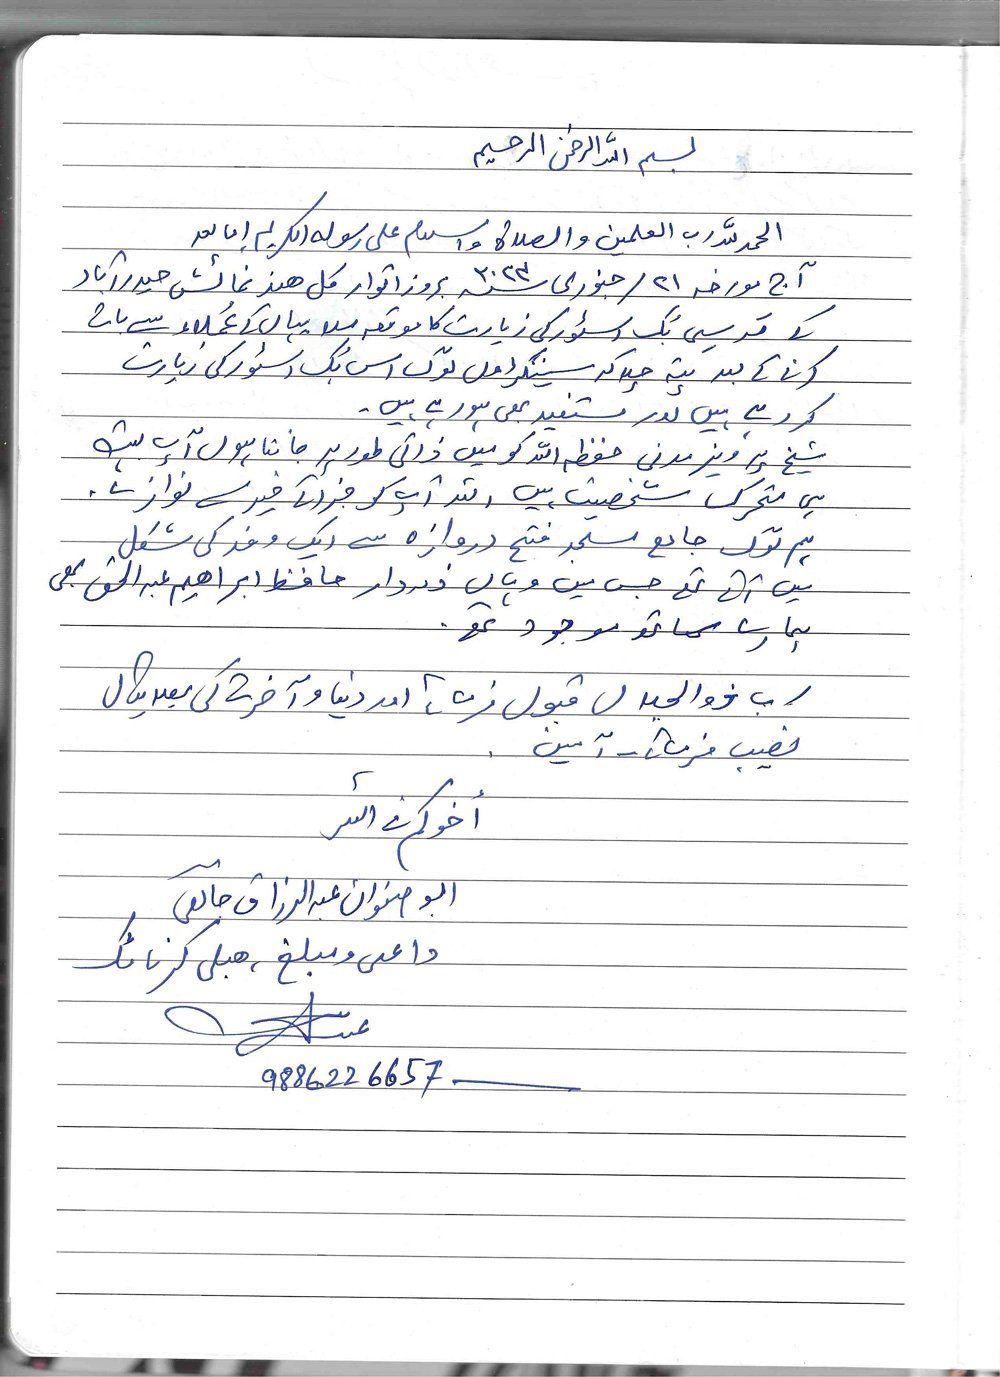 بسم اللہ الرحمٰن الرحیم
الحمدللہ رب العلمین والصلاۃ واسلام علی رسولہ الکریم اما بعد
آج مورخہ ۲۱/ جنوری سنہ ۲۰۲۴ بروز اتوار کل ھند نمائش حیدرآباد
کے قدسی بک اسٹور کی زیارت کا موقعہ ملا یہاں کے عُملاء سے بات
کرنے کے بعد پتہ چلا کہ سینکڑوں لوگ اس بک اسٹور کی زیارت
کر رہے ہیں اور مستفید بھی ہو رہے ہیں۔
شیخ پرویز مدنی حفظہ اللہ کو میں ذاتی طور پر جانتا ہوں آپ بہت
ہی متحرک شخصیت ہیں اللہ آپ کو جزائے خیر سے نوازے۔
ہم لوگ جامع مسجد فتح دروازہ سے ایک وفد کی شکل
میں آئے تھے جس میں وہاں ذمہ دار حافظ ابراھیم عبدالحق بھی
ہمارے ساتھ موجود تھے۔
رب ذوالجلال قبول فرمائے اور دنیا و آخرت کی بھلائیاں
نصیب فرمائے۔ آمین۔
أخوکم فی اللہ
ابو صفوان عبدالرزاق جامعی
داعی و مبلغ، ھبلی کرناٹک
9886226657